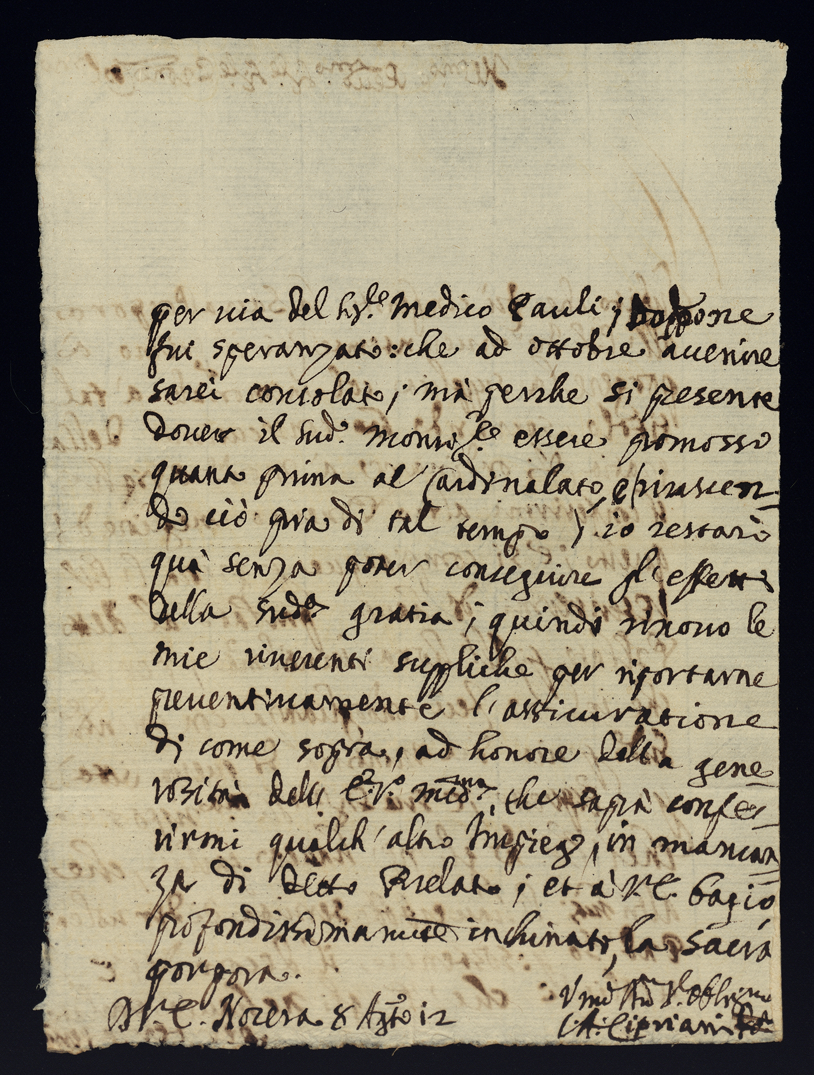 per via del Sig.re Medico Pauli; doppone
fui speranzato: che ad ottobre avenire
sarei consolato; mà perche si presente
dover il sud.o Monsig.re essere promosso
quanto prima al Cardinalato, e (riuscen-
do ciò pria di tal tempo) io restarò
quà senza poter conseguire gl'effetti
della sud.a gratia; quindi rinovo le
mie riverenti suppliche per riportarne
preventivamente l'assicuratione
di come sopra, ad honore della gene-
rosità dell' E.V. med.ma, che saprà confe-
rirmi qualch'altro Impiego, in mancan-
za di detto Prelato; et à V.E. bagio
profondissimamente inchinato, la Sacra
porpora.
D. V.E. Nocera 8 Ag.to 12
V.mo
C. A. Cipriani